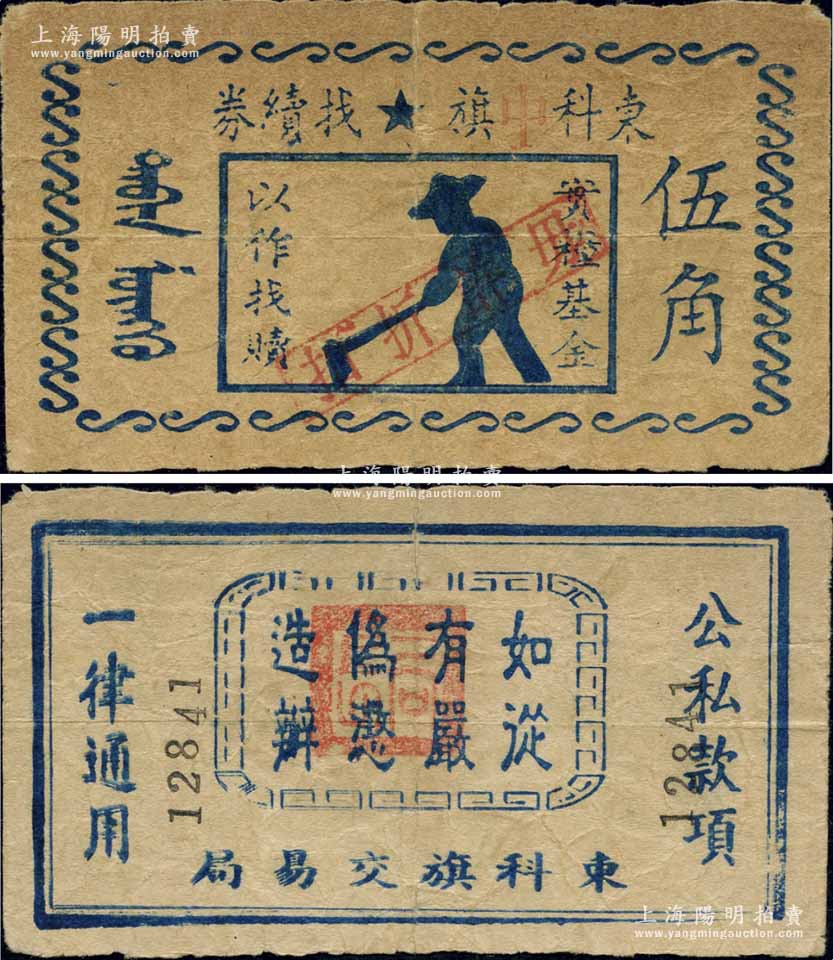 上海陽明拍賣
www.yangmingauction.com
東科中旗★找續券
伍角
實
基金
以作找贖
上海陽明拍賣
www.yangmingauction.com
公私款項
如有偽造
從嚴懲辦
一律通用
12841
12841
東科旗交易局
上海陽明拍賣
www.yangmingauction.com